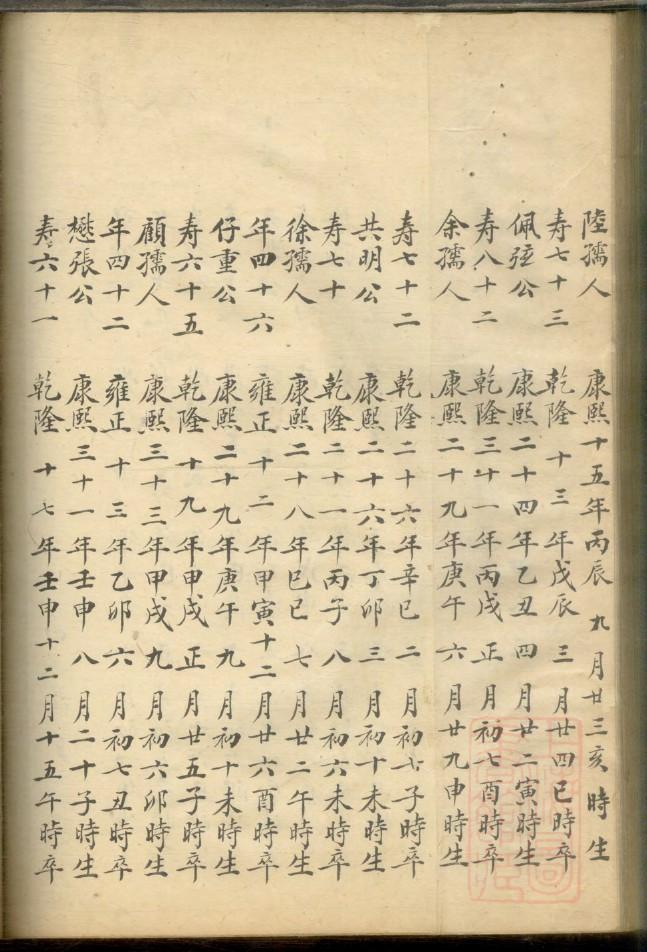 陸孺人 康熙十五年丙辰九月廿三亥時生
寿七十三 乾隆十三年戊辰三月廿四巳時卒
佩弦公 康熙二十四年乙丑四月廿二寅時生
寿八十二 乾隆三十一年丙戌正月初七酉時卒
余孺人 康熙二十九年庚午六月廿九申時生
寿七十二 乾隆二十六年辛巳二月初七子時卒
共明公 康熙二十六年丁卯三月初十未時生
寿七十 乾隆二十一年丙子八月初六未時卒
徐孺人 康熙二十八年巳巳七月廿二午時生
年四十六 雍正十二年甲寅十二月廿六酉時卒
仔重公 康熙二十九年庚午九月初十未時生
寿六十五 乾隆十九年甲戌正月廿五子時卒
顧孺人 康熙三十三年甲戌九月初六卯時生
年四十二 雍正十三年乙卯六月初七丑時卒
懋張公 康熙三十一年壬申八月二十子時生
寿六十一 乾隆十七年壬申十二月十五午時卒